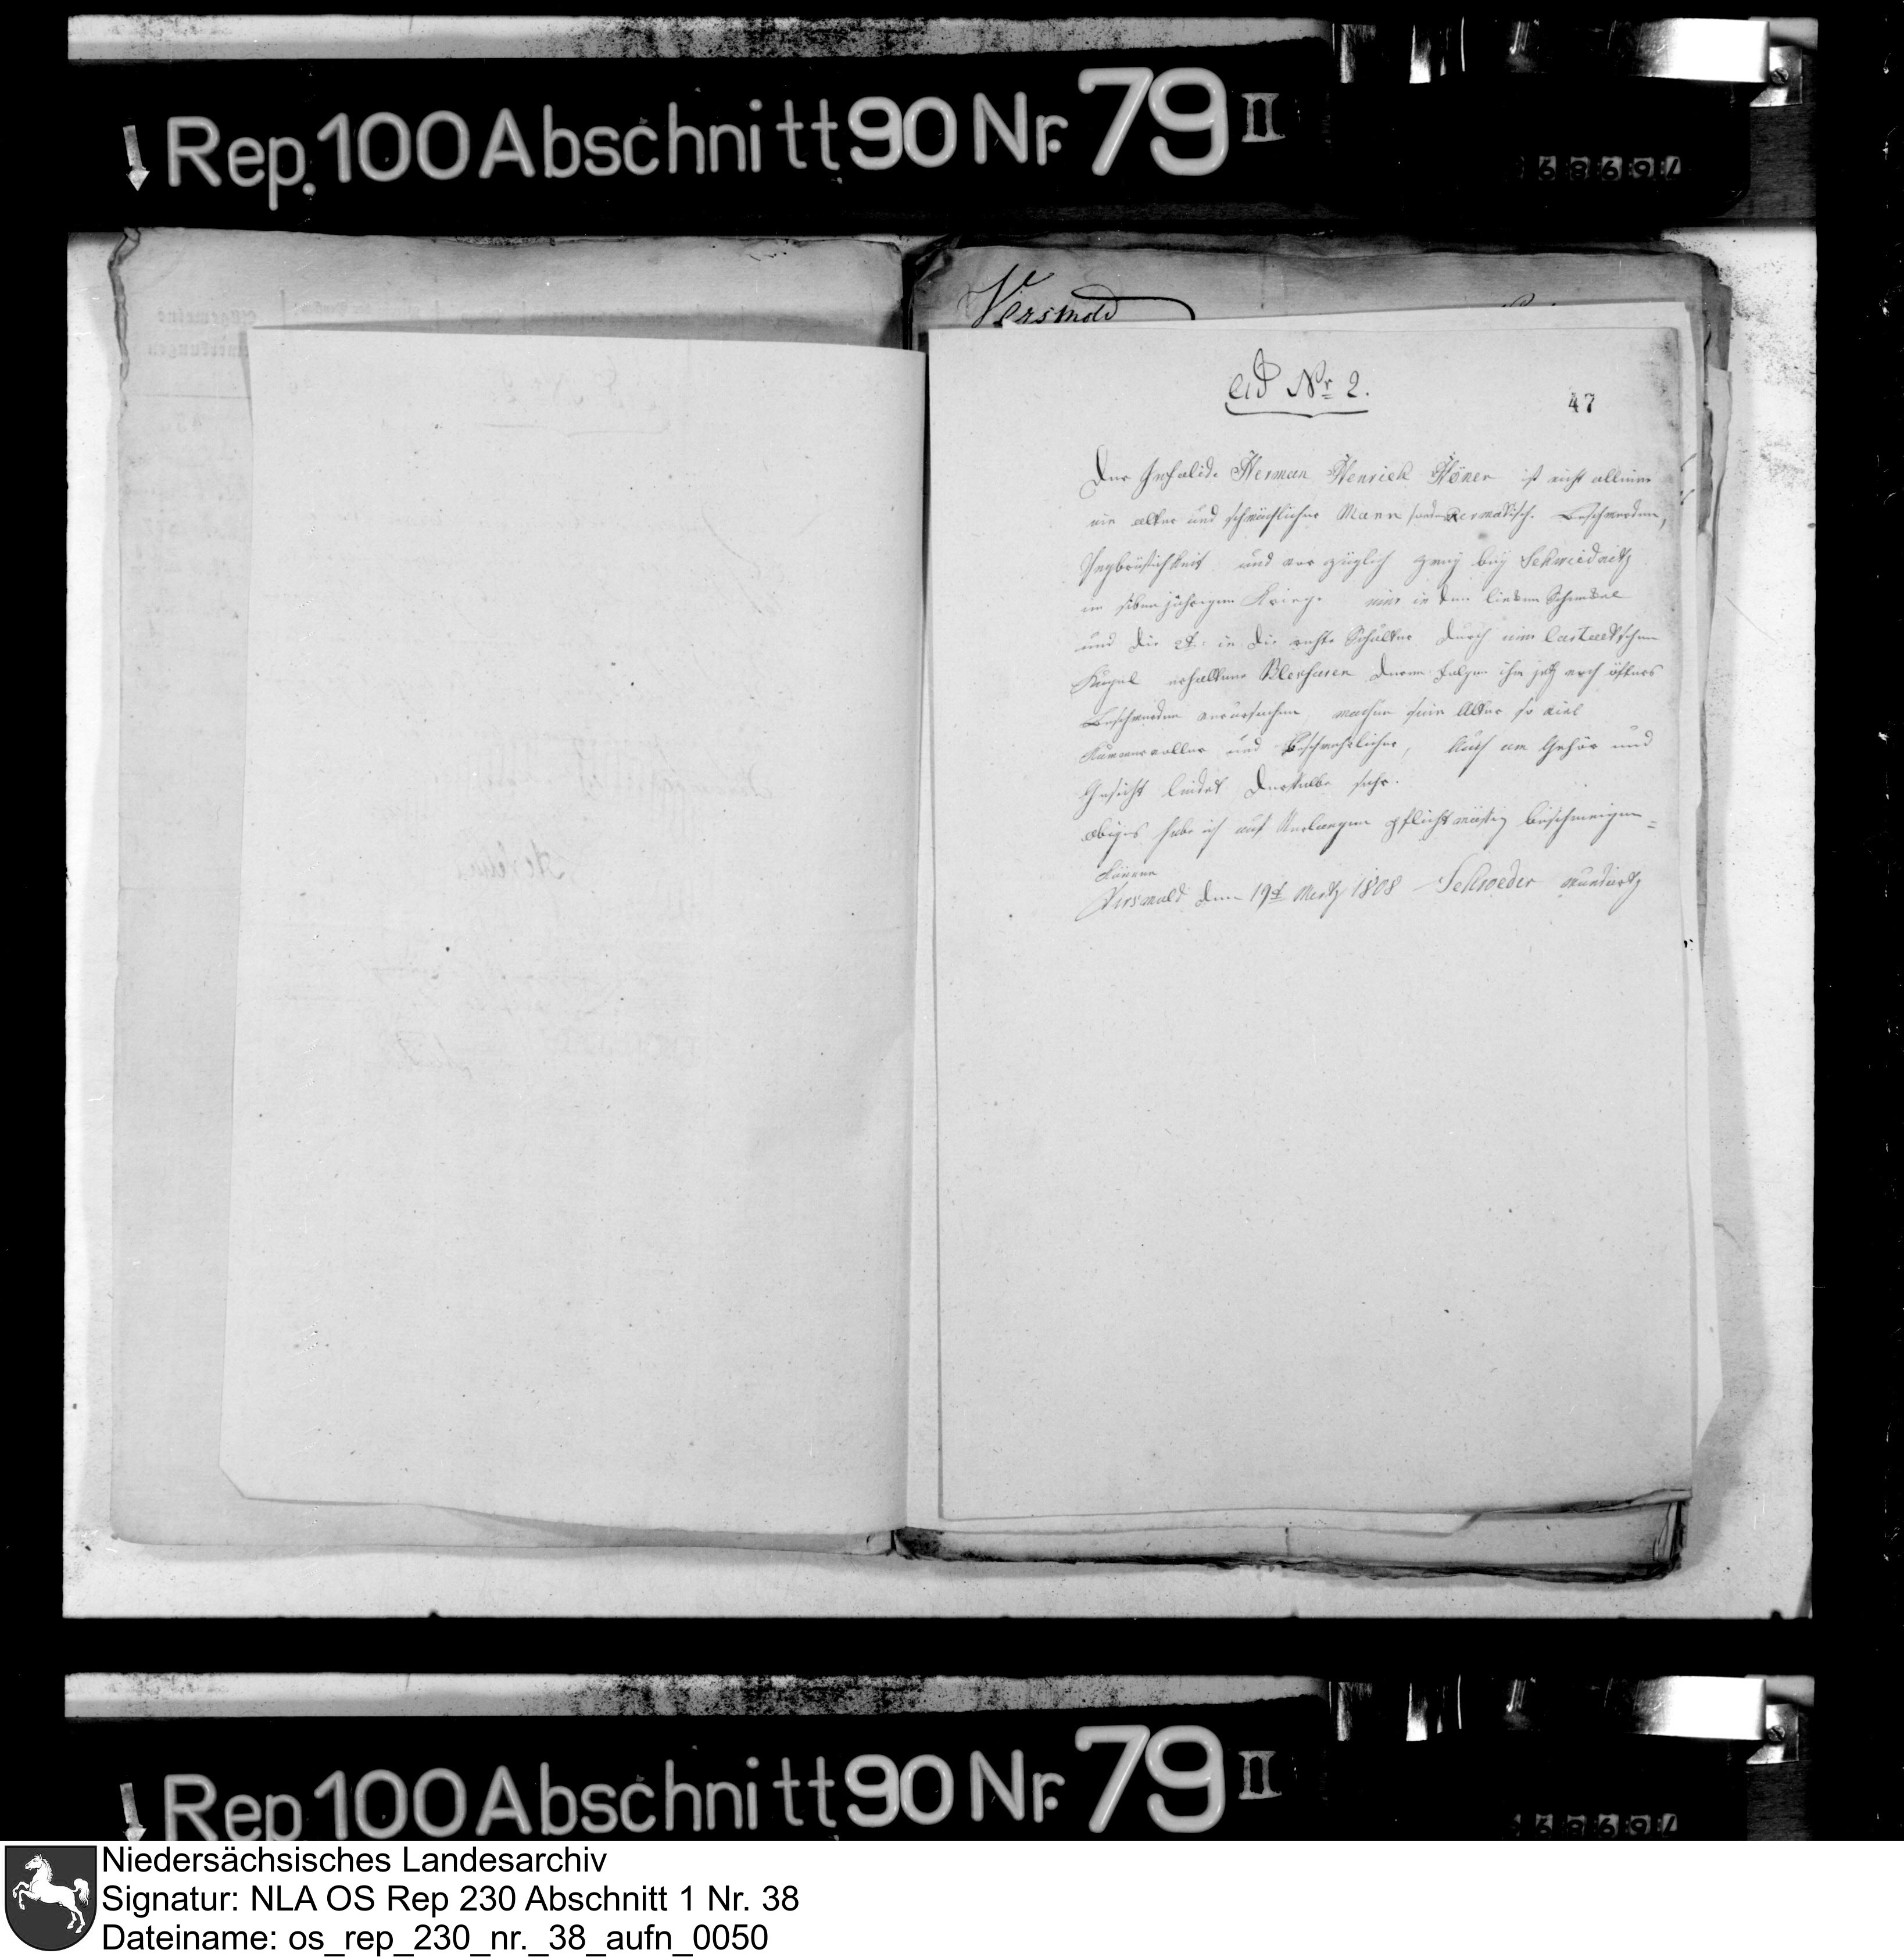 Rep. 100 Abschnitt 90 Nr. 79 II
Versmold
ad Nr 2.
47
Der Invalide Herman Henrick Höner ist nicht alleine
ein alter und schwächlicher Mann sondern Beschwerden,
Engbrüstigkeit und vorzüglich zwey bey Schweidnitz
im siebenjährigen Kriege eine in den linken Schenkel
und die 2t. in die rechte Schulter durch eine
Kugel erhaltene Blessuren deren Folgen ihm jetz noch öfters
Beschwerden verursachen, machen sein Alter so viel
Kummervoller und beschwehrlicher, Auch am Gehör und
Gesicht leidet derselbe sehr.
obiges habe ich auf Verlangen pflichtmässig bescheinigen
können
Versmold den 19t Mertz 1808 Schroeder wundartz
Rep 100 Abschnitt 90 Nr. 79 II
Niedersächsisches Landesarchiv
Signatur: NLA OS Rep 230 Abschnitt 1 Nr. 38
Dateiname: os_rep_230_nr._38_aufn_0050